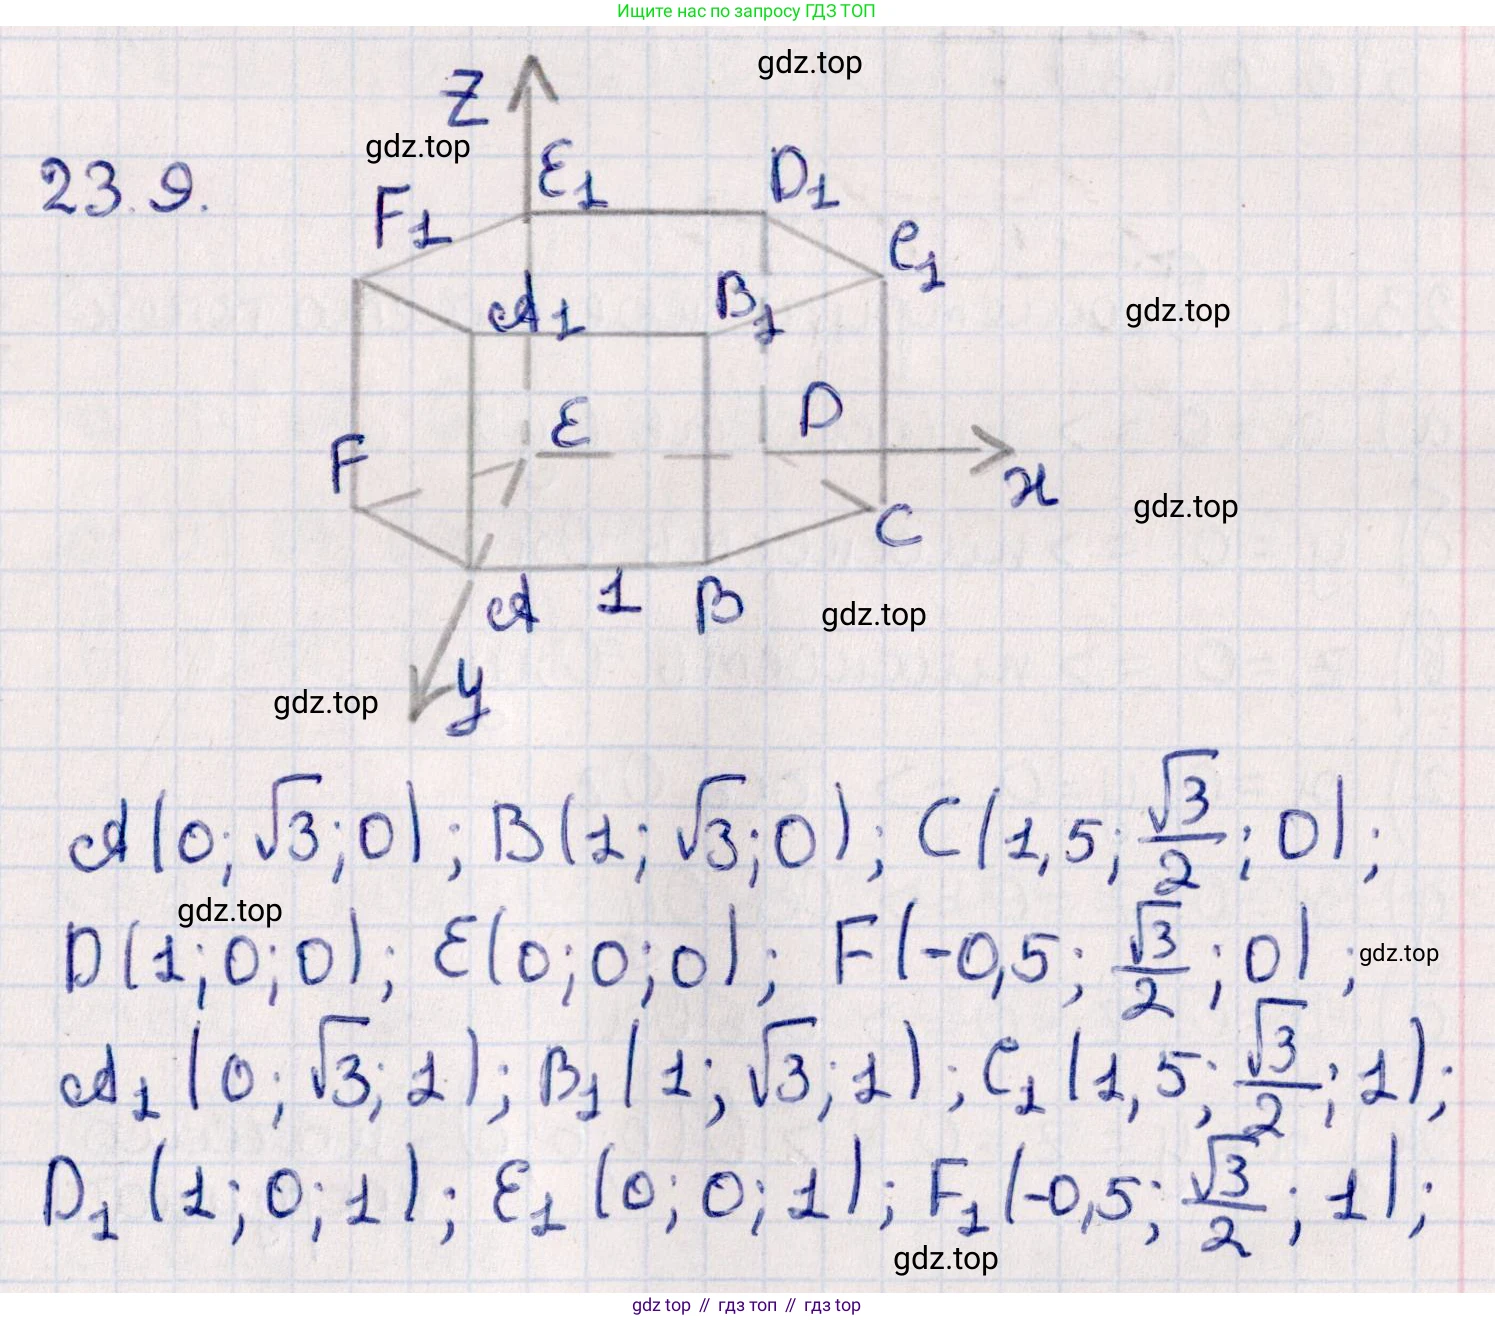 Ищите нас по запросу ГДЗ ТОП
gdz.top
Z
gdz.top
23.9.
E₁
D₁
F₁
C₁
A₁
B₁
gdz.top
E
D
F
x
gdz.top
C
A
1
B
gdz.top
y
gdz.top
A(0; √3; 0); B(1; √3; 0); C(1,5; √3/2; 0);
gdz.top
D(1; 0; 0); E(0; 0; 0); F(-0,5; √3/2; 0);
gdz.top
A₁(0; √3; 1); B₁(1; √3; 1); C₁(1,5; √3/2; 1);
D₁(1; 0; 1); E₁(0; 0; 1); F₁(-0,5; √3/2; 1);
gdz.top
gdz top // гдз топ // гдз top